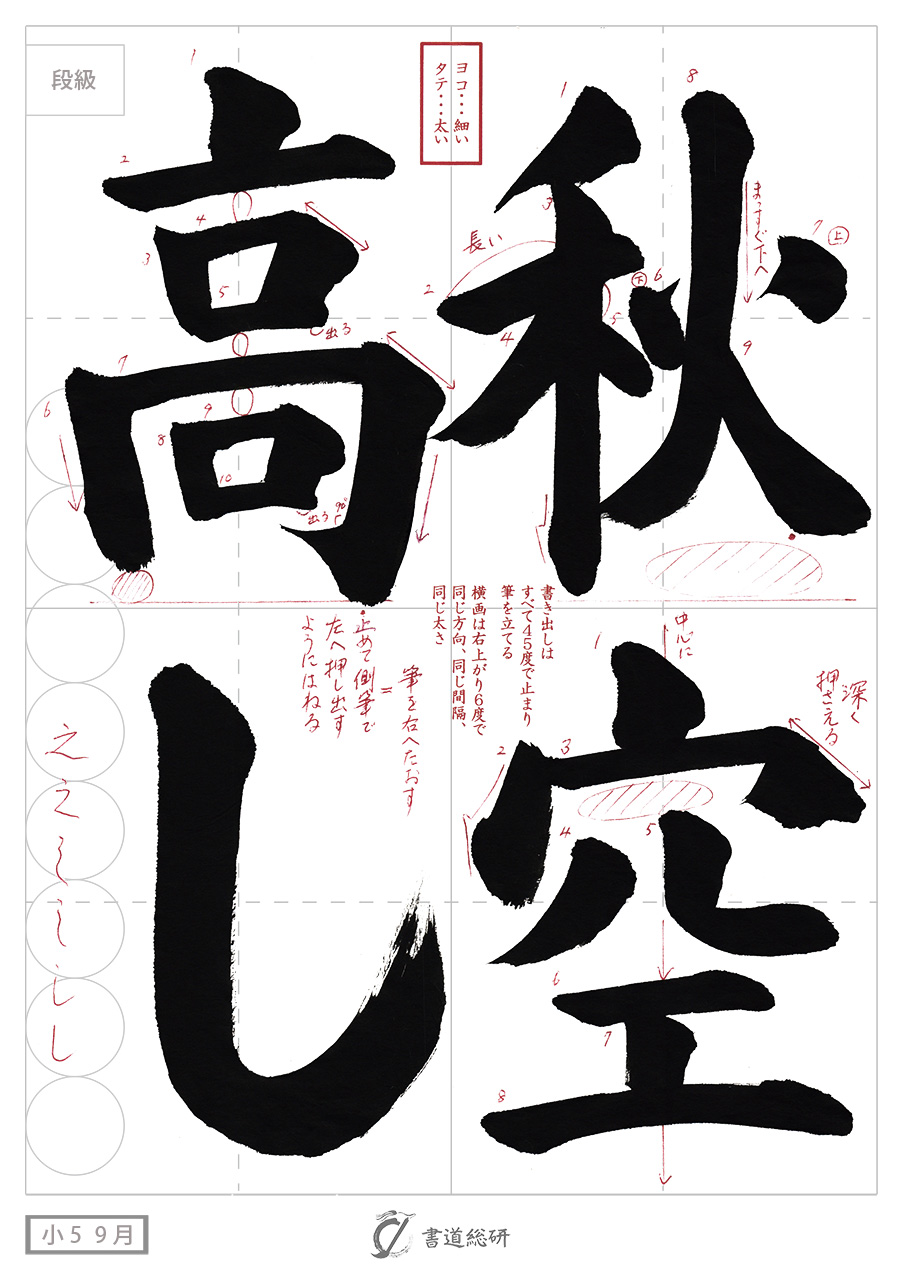 秋空
高し
ヨコ・・・細い
タテ・・・太い
段級
1
2
3
4
5
6
7
8
9
長い
下
上
まっすぐ下へ
1
2
3
4
5
6
7
8
9
10
出る
出る
90°
書き出しは
すべて45度で止まり
筆を立てる
横画は右上がり6度で
同じ方向、同じ間隔、
同じ太さ
中心に
深く
押さえる
1
2
3
4
5
6
7
8
筆を右へたおす
=
止めて側筆で
左へ押し出す
ようにはねる
小5 9月
書道総研